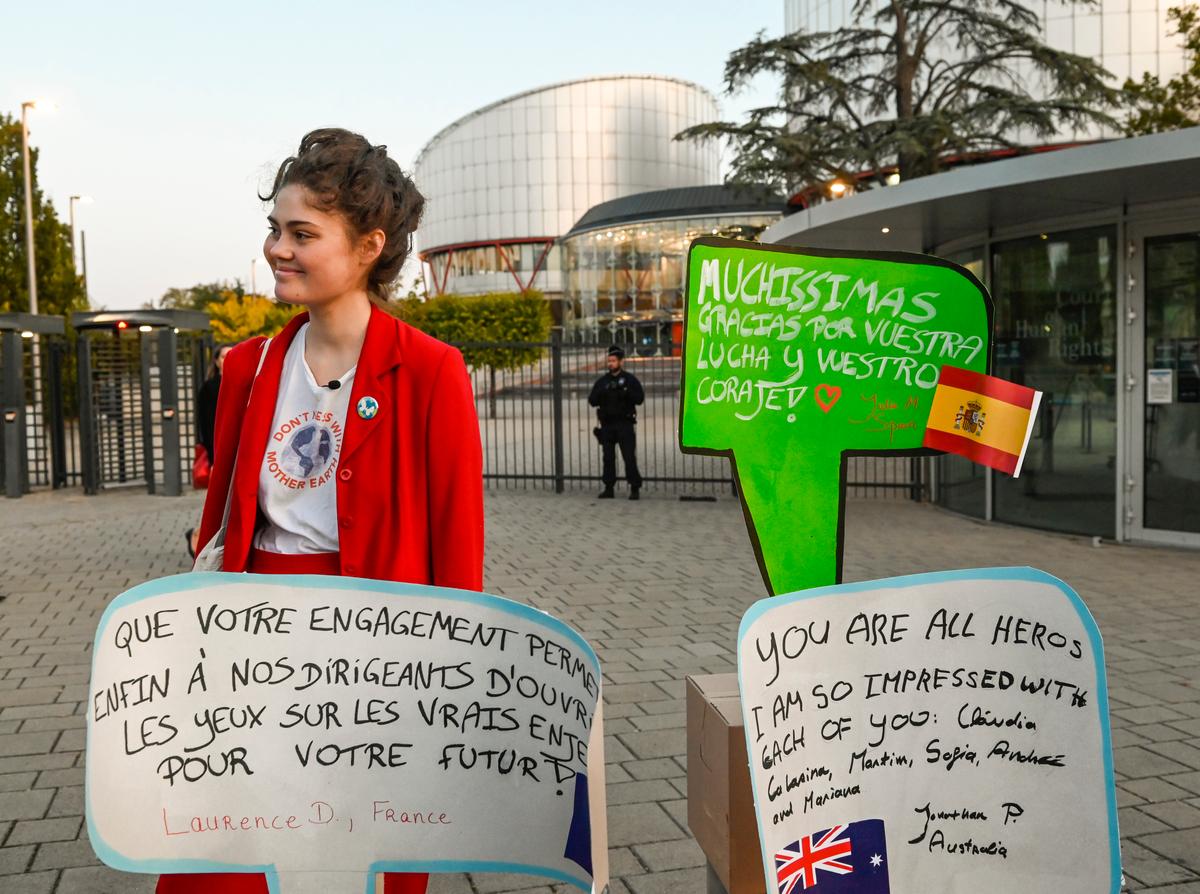 DON'T MESS WITH
MOTHER EARTH
MUCHISSIMAS
GRACIAS POR VUESTRA
LUCHA Y VUESTRO
CORAJE!
Court
Human
Rights
QUE VOTRE ENGAGEMENT PERME
ENFIN À NOS DIRIGEANTS D'OUVRI
LES YEUX SUR LES VRAIS ENJE
POUR VOTRE FUTUR!
Laurence D., France
YOU ARE ALL HEROS
I AM SO IMPRESSED WITH
EACH OF YOU: Cláudia
Catarina, Martim, Sofia, André
and Mariana
Jonathan P.
Australia